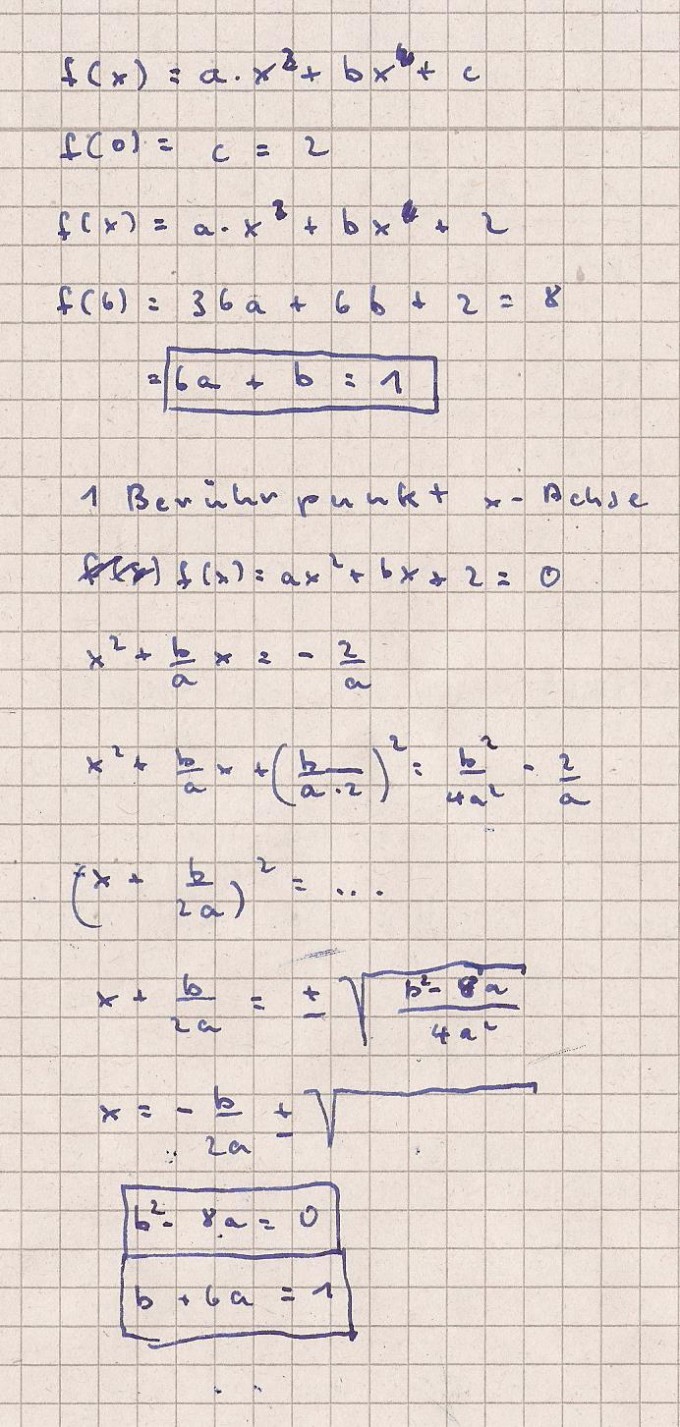 f(x) = a · x² + bx + c
f(0) = c = 2
f(x) = a · x² + bx + 2
f(6) = 36a + 6b + 2 = 8
= 6a + b = 1
1 Berührpunkt x-Achse
f(x) = ax² + bx + 2 = 0
x² + b/a x = - 2/a
x² + b/a x + (b/(a·2))² = b²/4a² - 2/a
(x + b/2a)² = ...
x + b/2a = ± √((b² - 8a)/4a²)
x = - b/2a ± √
b² - 8a = 0
b + 6a = 1
..